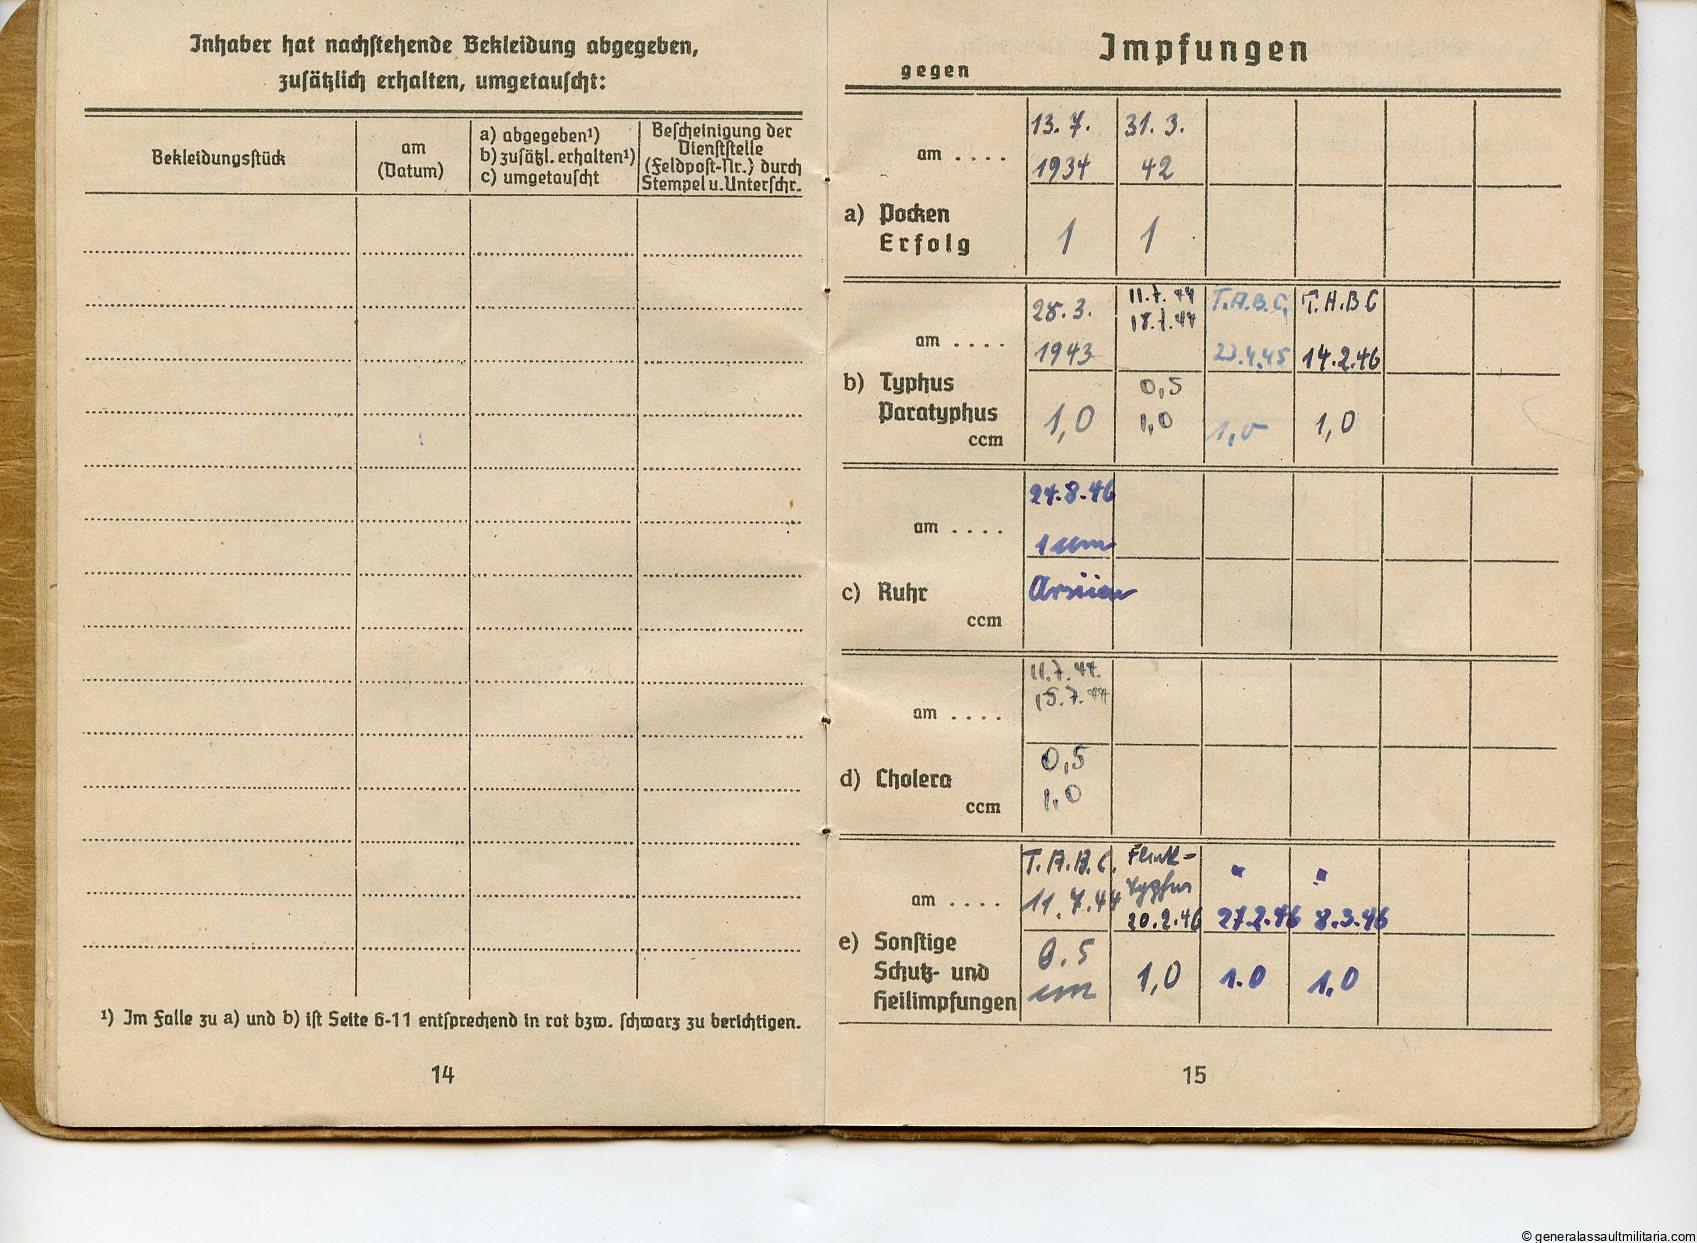 Inhaber hat nachstehende Bekleidung abgegeben,
zusätzlich erhalten, umgetauscht:
Bekleidungsstück
am
(Datum)
a) abgegeben¹)
b) zusätzl. erhalten¹)
c) umgetauscht
Bescheinigung der
Dienststelle
(Feldpost-Nr.) durch
Stempel u. Unterschr.
¹) Im Falle zu a) und b) ist Seite 6-11 entsprechend in rot bzw. schwarz zu berichtigen.
14
Impfungen
gegen
am . . . .
13. 7. 31. 3.
1934 42
a) Pocken
Erfolg
1 1
am . . . .
28. 3. 11.7.44 T.A.B.C. T.A.B.C
1943 23.4.45 14.2.46
b) Typhus
Paratyphus
ccm
1,0 0,5 1,0 1,0 1,0
am . . . .
24.8.46
1 ccm
c) Ruhr
ccm
am . . . .
11.7.44.
d) Cholera
ccm
0,5
1,0
am . . . .
T.A.B.C. Fleck=
typhus " "
11.7.44 20.2.46 27.2.46 8.3.46
e) Sonstige
Schutz- und
Heilimpfungen
0.5 1,0 1.0 1.0
ccm
15
© generalassaultmilitaria.com